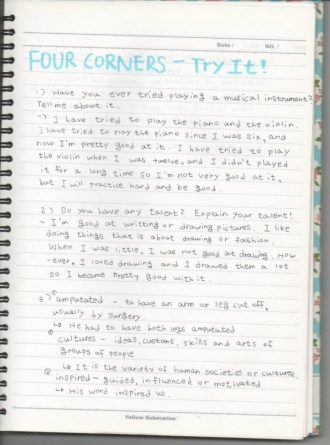 Date / NO. /
FOUR CORNERS - Try It!
1) Have you ever tried playing a musical instrument?
Tell me about it.
→ I have tried to play the piano and the violin.
I have tried to play the piano since I was six, and
now I'm pretty good at it. I have tried to play
the violin when I was twelve, and I didn't played
it for a long time so I'm not very good at it,
but I will practice hard and be good.
2) Do you have any talent? Explain your talent!
- I'm good at writting or drawing pictures. I like
doing things that is about drawing or fashion.
When I was little, I was not good at drawing. How
-ever, I loved drawing and I drawed them a lot
so I became pretty good with it.
3) amputated - to have an arm or leg cut off,
usually by surgery.
↳ He had to have both legs amputated
cultures - ideas, customs, skills and arts of
groups of people
↳ It is the variety of human societies or cultures
inspired - guided, influenced or motivated
↳ His word inspired us.
Yellow Submarine